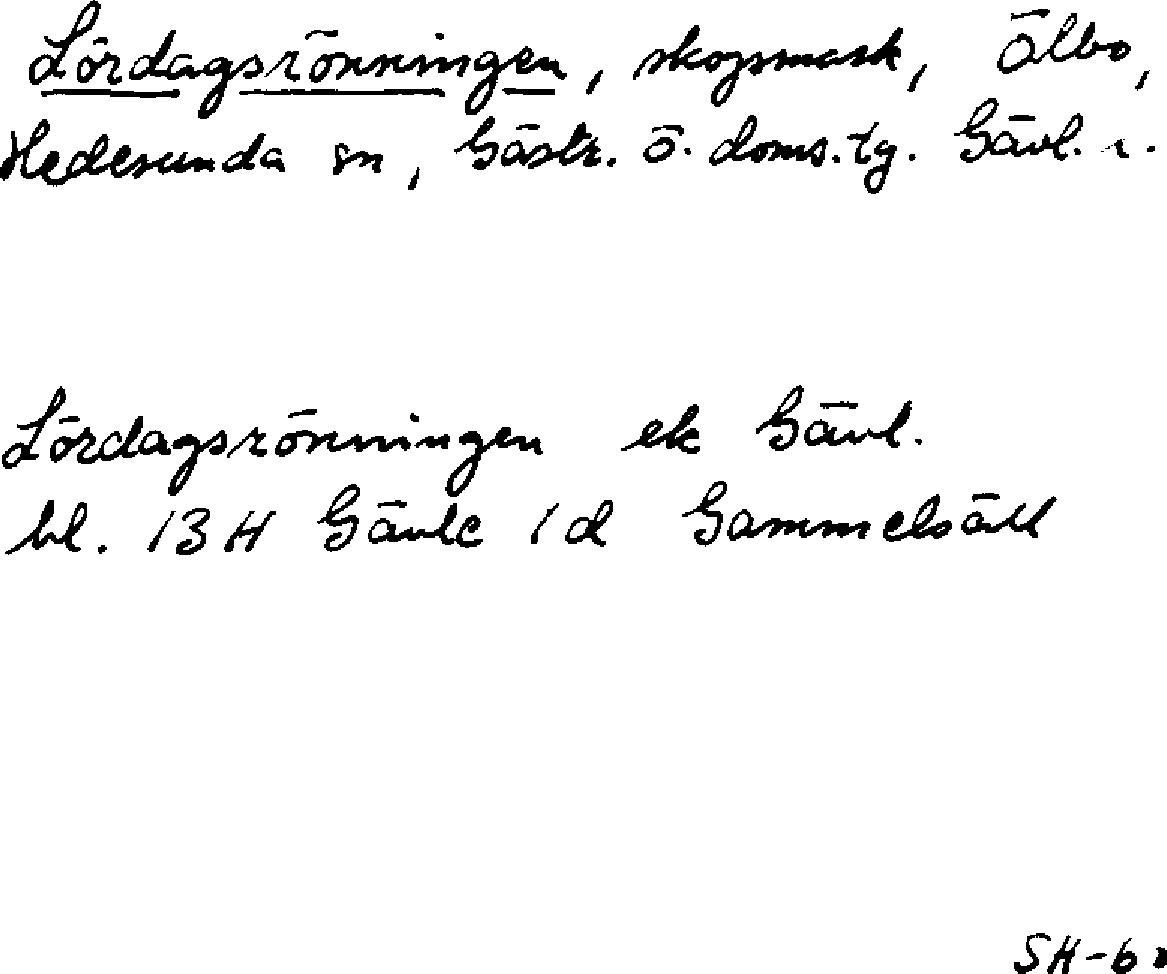 Lördagsrönningen, skogsmark, Ölbo,
Hedesunda sn, Gästr. ö. doms.tg. Gävl. l.
Lördagsrönningen ek Gävl.
bl. 13H Gävle 1d Gammelsäll
SH-6